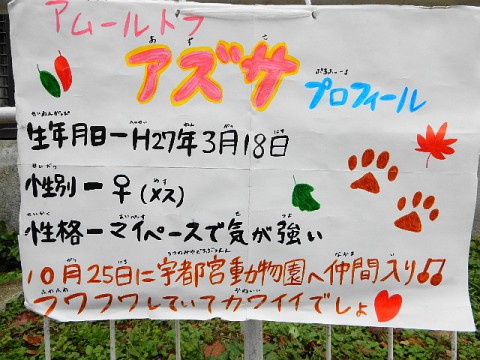 アムールトラ
アズサ プロフィール
生年月日ーH27年3月18日
性別ー♀(メス)
性格ーマイペースで気が強い
10月25日に宇都宮動物園へ仲間入り♫
フワフワしていてカワイイでしょ♥